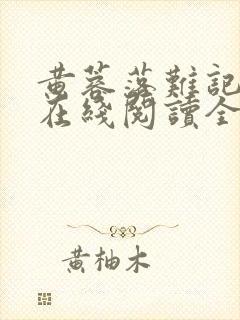 黄蓉落難記
在綫閱讀全
黄柚木